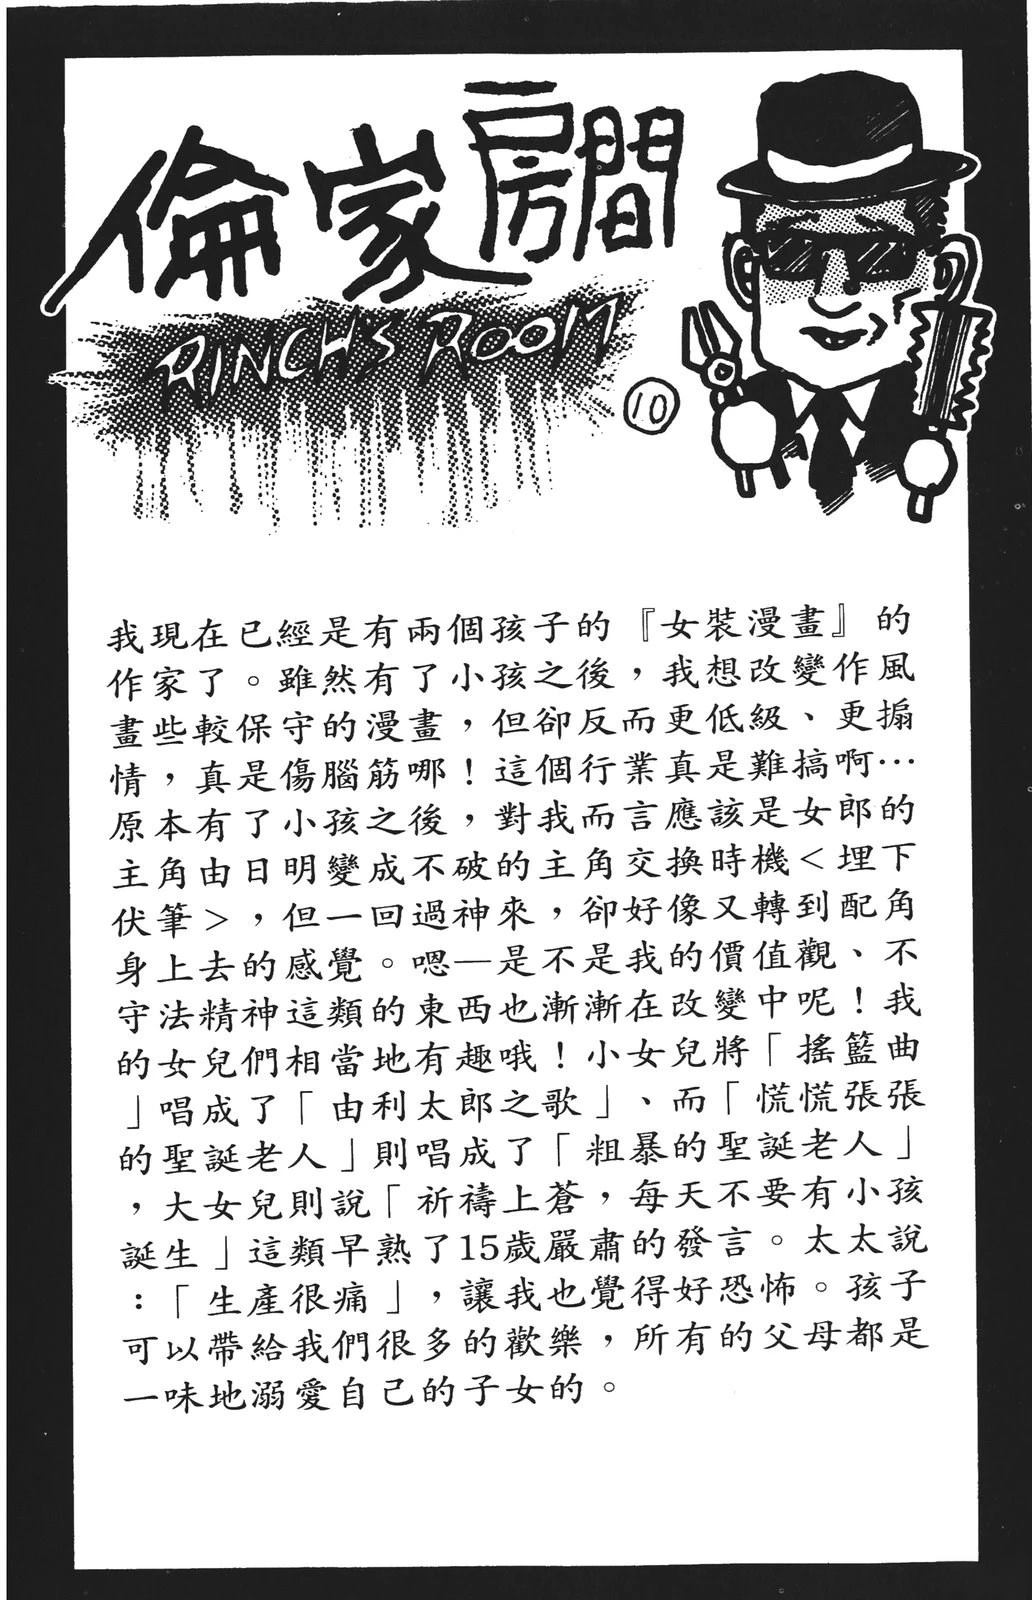 倫家房間
RINCH'S ROOM
10
我現在已經是有兩個孩子的『女裝漫畫』的
作家了。雖然有了小孩之後，我想改變作風
畫些較保守的漫畫，但卻反而更低級、更搧
情，真是傷腦筋哪！這個行業真是難搞啊…
原本有了小孩之後，對我而言應該是女郎的
主角由日明變成不破的主角交換時機＜埋下
伏筆＞，但一回過神來，卻好像又轉到配角
身上去的感覺。嗯—是不是我的價值觀、不
守法精神這類的東西也漸漸在改變中呢！我
的女兒們相當地有趣哦！小女兒將「搖籃曲
」唱成了「由利太郎之歌」、而「慌慌張張
的聖誕老人」則唱成了「粗暴的聖誕老人」
，大女兒則說「祈禱上蒼，每天不要有小孩
誕生」這類早熟了15歲嚴肅的發言。太太說
：「生產很痛」，讓我也覺得好恐怖。孩子
可以帶給我們很多的歡樂，所有的父母都是
一味地溺愛自己的子女的。